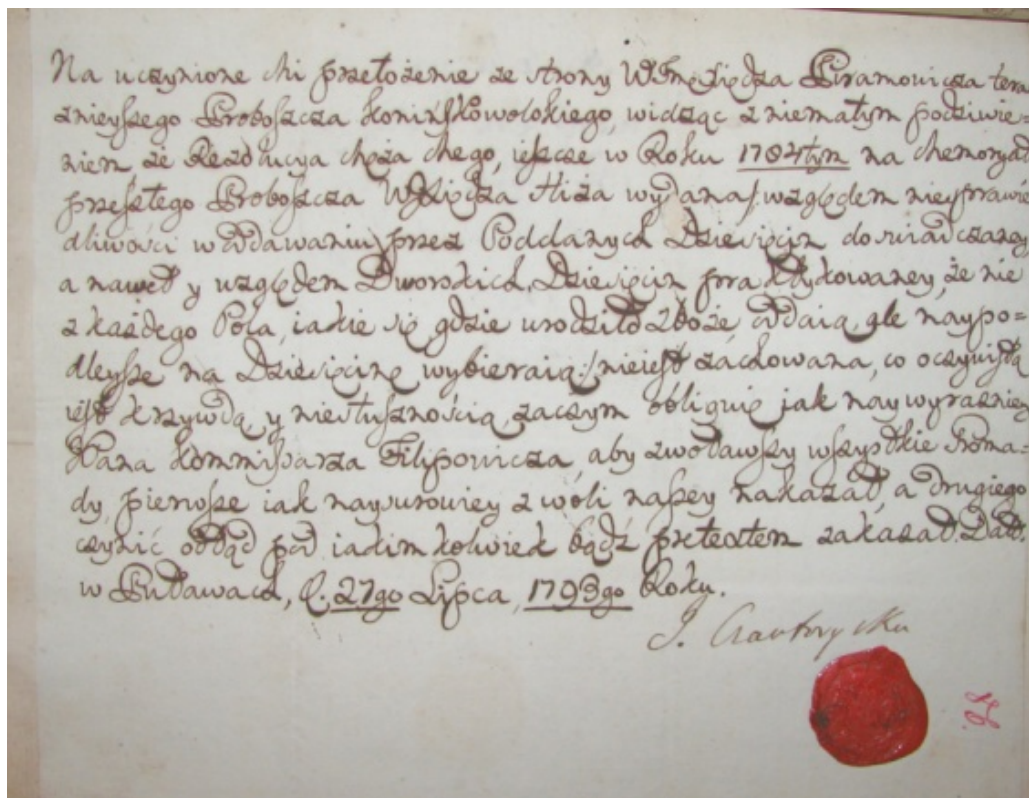 Na uczynione Mi przełożenie ze strony WJmXiędza Piramowicza tera
znieyszego Proboszcza Końińskowolskiego, widząc z niemałym podziwie-
niem, że Rezolucya Męża Mego, ieszcze w Roku 1784tym na Memoryał
przeszłego Proboszcza WXiędza Hiża wydana /: względem niesprawie
dliwości w oddawaniu przez Poddanych Dziesięcin doświadczaney
a nawet y względem Dworskich Dziesięcin praktykowaney, że nie
z każdego Pola, iakie się gdzie urodziło zboże oddaią, ale naypo=
dleysze na Dziesięcinę wybieraią :/ nieiest zachowana, co oczywistą
iest krzywdą y niesłusznością, zaczym obliguię jak naywyrazniey
Pana Kommissarza Filipowicza, aby zwoławszy wszystkie Groma-
dy, pierwsze iak naysurowiey z woli naszey nakazał, a drugiego
czynić oddąd pod iakim kolwiek bądź pretextem zakazał. Datt.
w Puławach, D. 27go Lipca, 1793go Roku.
J. Czartoryska